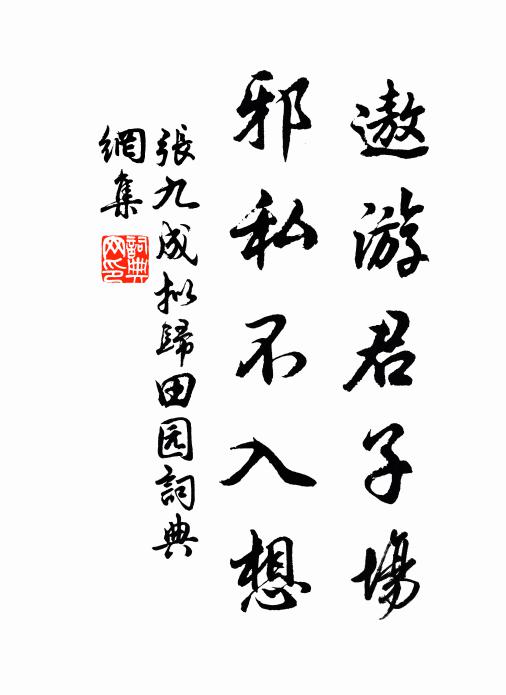 遨游君子場
邪私不入想
張九成拟歸田园詞典
網集
詞典
网印